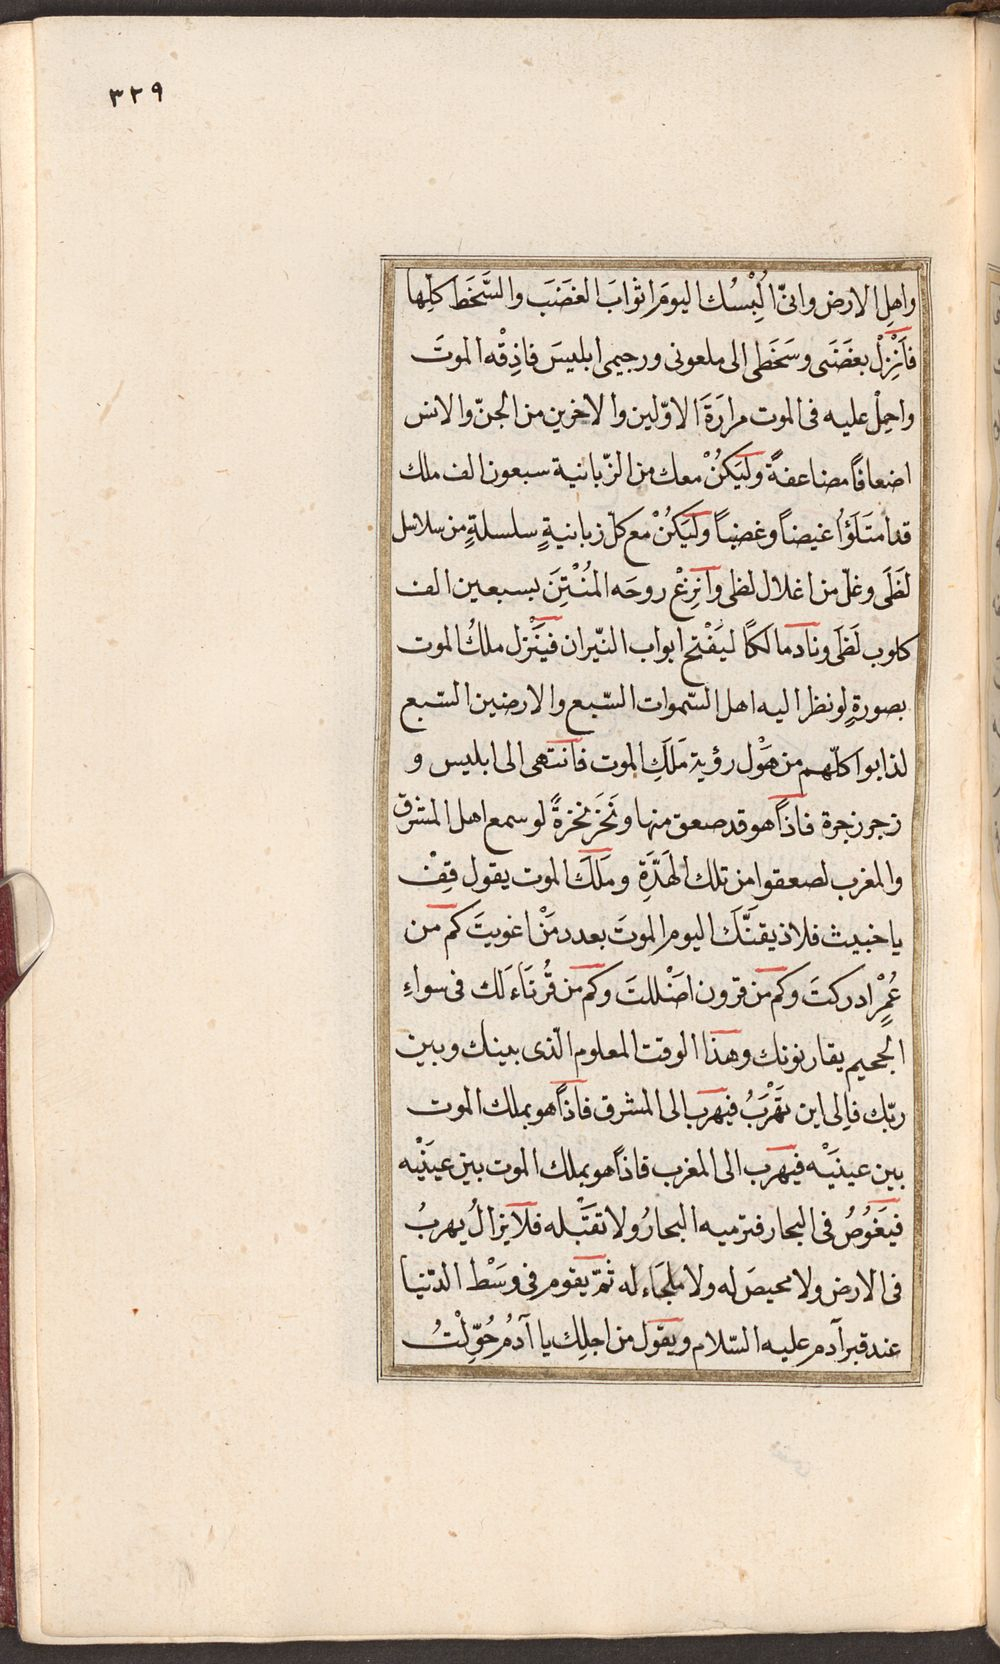 ٣٢٩
واهل الارض وانّى اُلبِسُك اليومَ اثوابَ الغضَبَ والسَّخَط كلّها
فَاَنْزِلْ بغضَبى وسَخَطى الى ملعونى ورجيمى ابليسَ فاذِقْه الموتَ
واحمِلْ عليه فى الموت مرارَةَ الاوّلين والاخرين من الجنّ والانس
اضعافاً مضاعفةً ولْيَكُنْ معك من الزّبانية سبعون الف ملك
قد امتَلَؤُا غيضاً وغضباً ولْيَكُنْ مع كلّ زبانيةٍ سلسلةٍ من سلاسل
لَظَى وغلّ من اغلال لظى وانْزِعْ روحَه المُنْتِنَ بسبعين الف
كلوب لَظَى وناد مالكاً ليَفْتح ابواب النّيران فيَنْزل ملكُ الموت
بصورةٍ لو نظر اليه اهل السّموات السّبع والارضين السّبع
لذابوا كلّهم من هَوْل رؤية مَلَكِ الموت فانتهى الى ابليس و
زجر زجرة فاذاً هو قد صعق منها ونَخَرَ نخرةً لو سمع اهل المشرق
والمغرب لصعقوا من تلك الهَدَّةِ ومَلَكَ الموت يقول قِفْ
يا خبيث فلاذيقنَّكَ اليوم الموتَ بعدد مَنْ اغويتَ كم من
عُمْرٍ ادركتَ وكم من قرون اضْللتَ وكم من قُرنَاءَ لك فى سواءِ
الجحيم يقارنونك وهذا الوقت المعلوم الّذى بينك وبين
ربّك فاِلى اين تَهْرَبُ فيهرب الى المشرق فاذاً هو بملك الموت
بين عينَيْه فيهرب الى المغرب فاذاً هو بملك الموت بين عينَيْه
فيَغوُصُ فى البحار فترميه البحارُ ولا تقْبَله فلا يزالُ يهربُ
فى الارض ولا محيصَ له ولا ملجَاء له ثمّ يقوم فى وسَط الدّنيا
عند قبر آدم عليه السّلام ويقول من اجلِك يا آدمُ حُوِّلْتُ